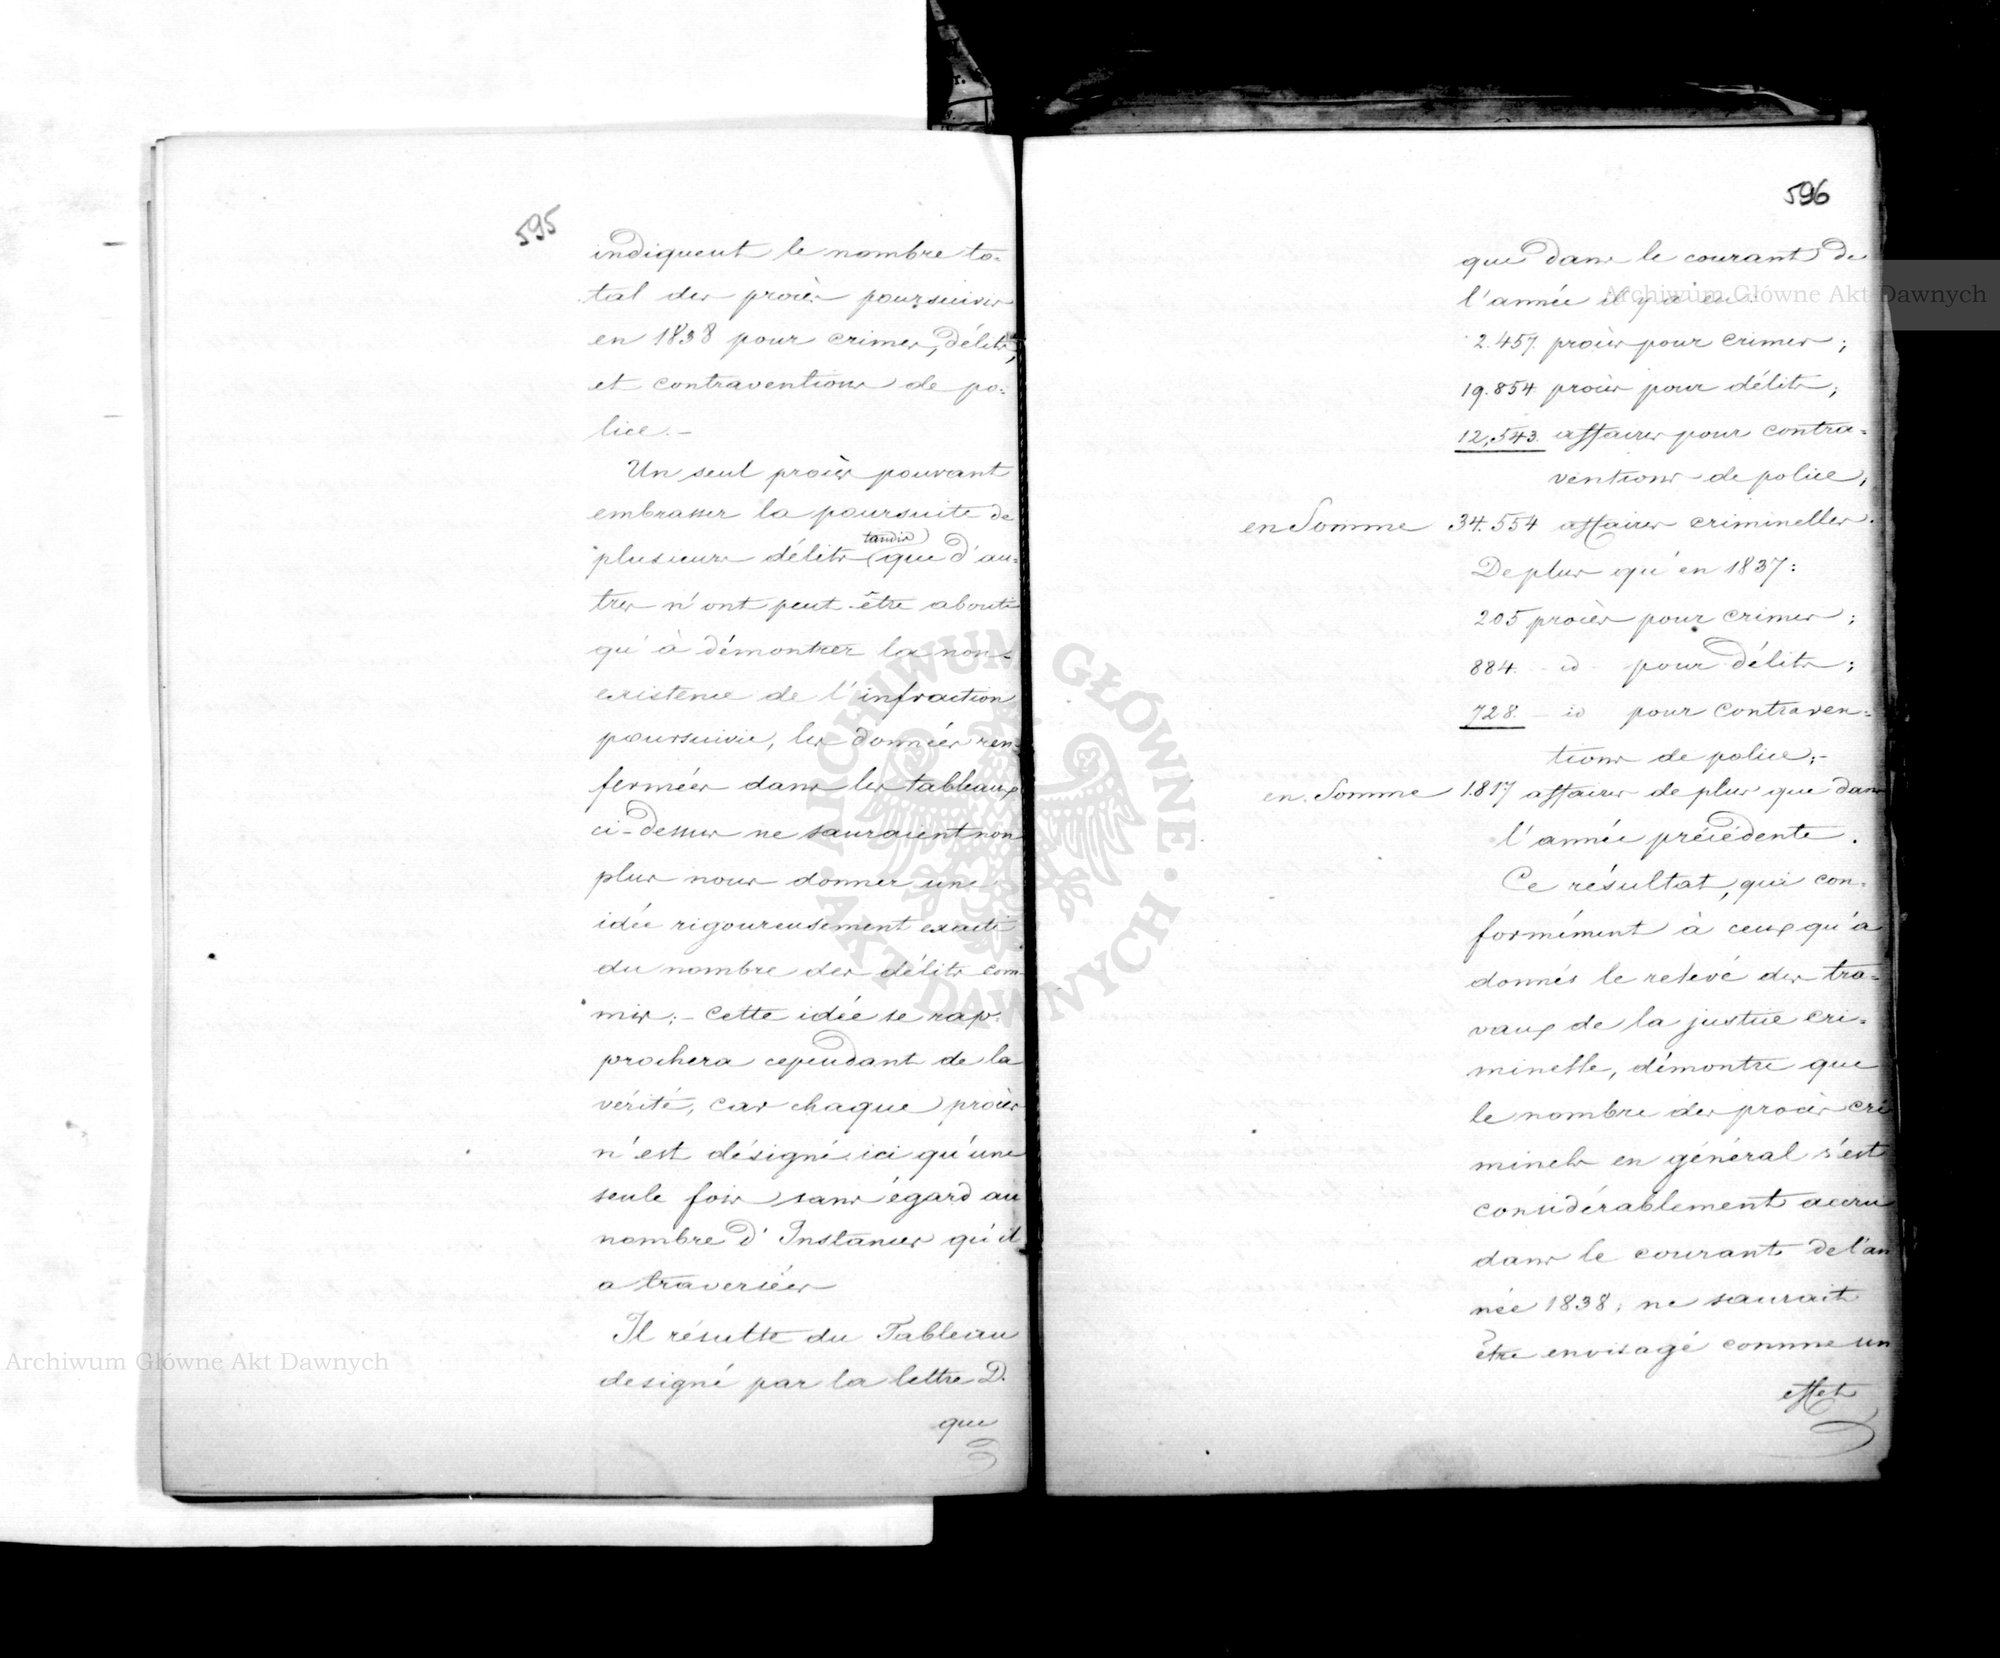 595
indiquent le nombre to-
tal des procès poursuivis
en 1838 pour crimes, délits,
et contraventions de po-
lice.—
Un seul procès pouvant
embrasser la poursuite de
tandis
plusieurs délits que d'au-
tres n'ont peut-être abouti
qu'à démontrer la non-
existence de l'infraction
poursuivie, les données ren-
fermées dans les tableaux
ci-dessus ne sauraient non
plus nous donner une
idée rigoureusement exacte
du nombre des délits com-
mis;— Cette idée se rap-
prochera cependant de la
vérité, car chaque procès
n'est désigné ici qu'une
seule fois sans égard au
nombre d'Instances qu'il
a traversées
Il résulte du Tableau
designé par la lettre D.
que
596
que dans le courant de
l'année il y a eu:
2.457. procès pour crimes;
19.854 procès pour délits;
12,543. affaires pour contra-
ventions de police,
en Somme 34.554 affaires criminelles.
De plus qu'en 1837:
205 procès pour crimes;
884. — id — pour délits;
728. — id pour contraven-
tions de police;—
en Somme 1.817 affaires de plus que dans
l'année précédente.
Ce résultat, qui con-
formément à ceux qu'a
donnés le relevé des tra-
vaux de la justice cri-
minelle, démontre que
le nombre des procès cri
minels en général s'est
considérablement accru
dans le courant de l'an
née 1838, ne saurait
être envisagé comme un
effet
Archiwum Główne Akt Dawnych
Archiwum Główne Akt Dawnych
ARCHIWUM GŁÓWNE AKT DAWNYCH